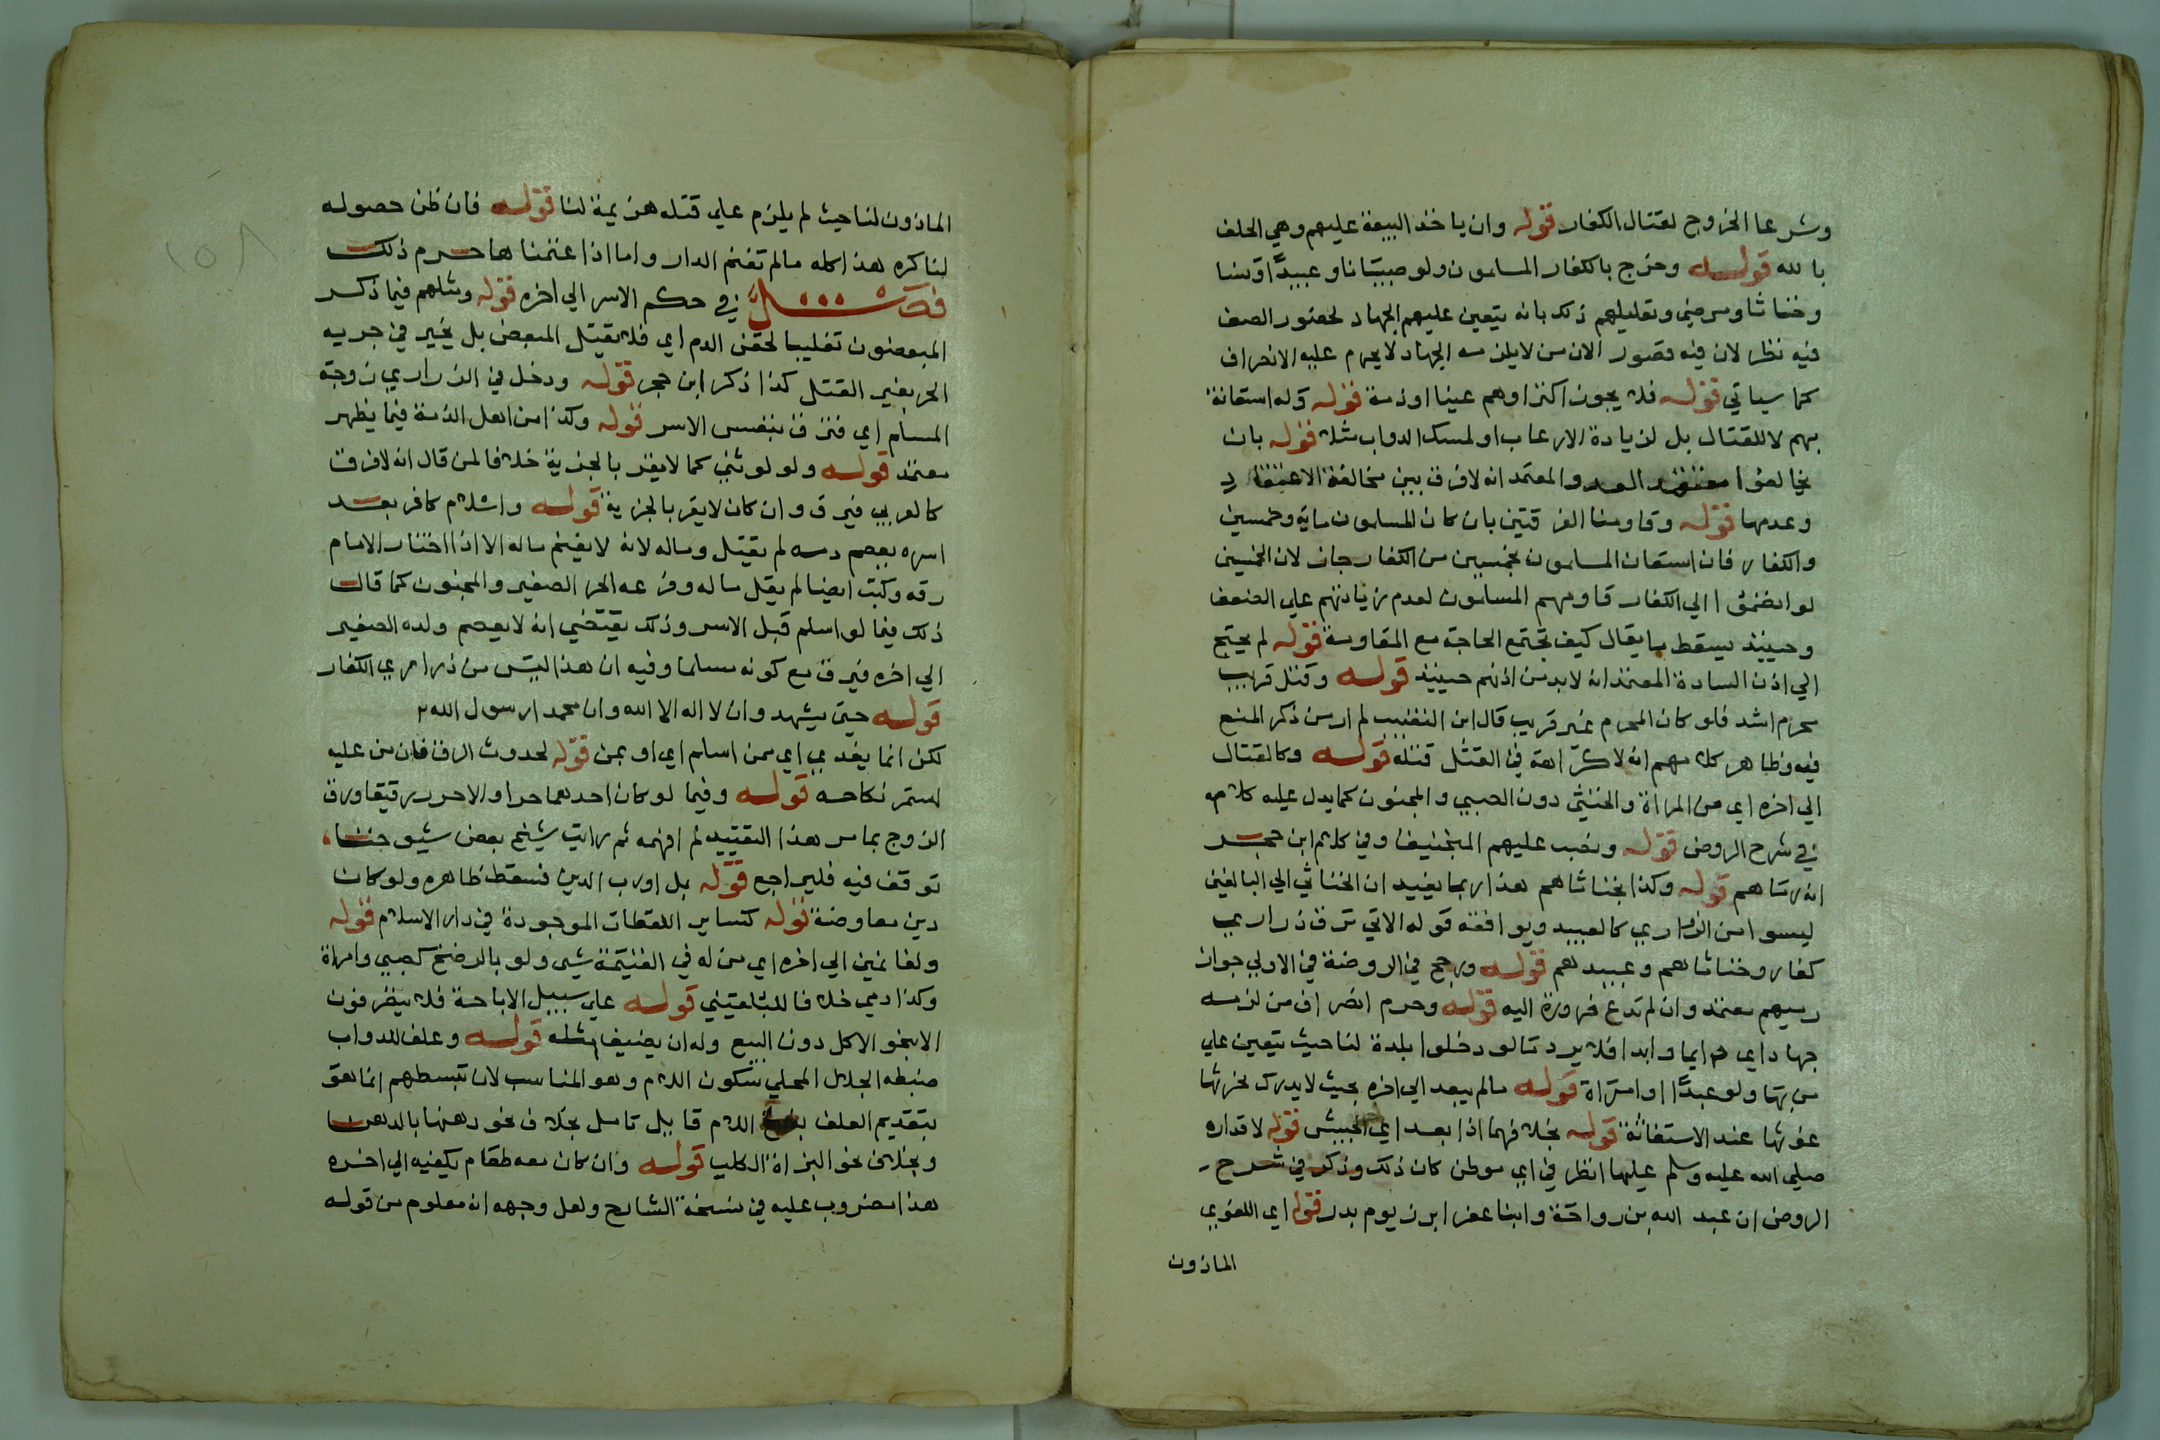 وشرعا الخروج لقتال الكفار قوله وان ياخذ البيعة عليهم وهي الحلف
بالله قوله وخرج بالكفار المسلمون ولو صبيانا وعبيدا ونسا
وخناثا ومرضي وتعليلهم ذلك بانه يتعين عليهم الجهاد لحضور الصف
فيه نظر لان فيه قصور الان من لا يلزمه الجهاد لا يحرم عليه الانحراف
كما سياتي قوله فلا يجوز اكتراوهم عينا او ذمة قوله وله استعانة
بهم لا للقتال بل لزيادة الارعاب او لمسك الدواب مثلا قوله بان
يخالفوا معتقد العدو والمعتمد انه لا فرق بين مخالفة الاعتقاد
وعدمها قوله وقاومنا الفرقتين بان كان المسلمون ماية وخمسين
والكفار فان استعان المسلمون بخمسين من الكفار جاز لان الخمسين
لو انضموا الي الكفار قاومهم المسلمون لعدم زيادتهم علي الضعف
وحينيذ يسقط ما يقال كيف تجتمع الحاجة مع المقاومة قوله لم يحتج
الي اذن السادة المعتمد انه لا بد من اذنهم حينيذ قوله وقتل قريب
محرم اشد فلو كان المحرم غير قريب قال ابن النقيب لم ار من ذكر المنع
فيه وظاهر كلامهم انه لا كراهة في القتل قتله قوله وكالقتال
الي اخره اي من المراة والخنثي دون الصبي والمجنون كما يدل عليه كلامه
في شرح الروض قوله ونصب عليهم المنجنيق وفي كلام ابن حجر
انه نساهم قوله وكذا بخناثاهم هذا ربما يفيد ان الخناثي الي البالغين
ليسوا من الذراري كالعبيد ويوافقه قوله الاتي ترق ذراري
كفار وخناثاهم وعبيدهم قوله ورجح في الروضة في الاولي جواز
رميهم معتمد وان لم تدع ضرورة اليه قوله وحرم انصراف من لزمه
جهاد اي دايما وابدا فلا يرد ما لو دخلوا بلدة لنا حيث يتعين علي
من بها ولو عبدا او امراة قوله مالم يبعد الي اخره بحيث لا يدرك نحر نها
غوثها عند الاستغاثة قوله بخلافهما اذا بعد اي الجيش قوله لا قداره
صلي الله عليه وسلم عليها انظر في اي موطن كان ذلك وذكر في شرح
الروض ان عبد الله بن رواحة وابنا عفرا برزيوم بدر قوله اي اللغوي
الماذون
الماذون لنا حيث لم يلزم علي قتله هزيمة لنا قوله فان ظن حصوله
لنا كره هذا كله مالم تغنم الدار واما اذا غنمناها حرم ذلك
فصل في حكم الاسر الي اخره قوله ومثلهم فيما ذكر
المبعضون تغليبا لحقن الدم اي فلا يقتل المبعض بل يخير في جريه
الحر بغير القتل كذا ذكر ابن حجر قوله ودخل في الذراري زوجة
المسلم اي فترق بنفس الاسر قوله وكذا من اهل الذمة فيما يظهر
معتمد قوله ولو لوثني كما لا يقر بالجزية خلافا لمن قال انه لا فرق
كالعربي فيرق وان كان لا يقر بالجزية قوله واسلام كافر بعد
اسره يعصم دمه لم يقتل وماله لانه لا يغنم ماله الا اذا اختار الامام
رقه وكتب ايضا لم يقل ماله وفرعه الحر الصغير والمجنون كما قال
ذلك فيما لو اسلم قبل الاسر وذلك يقتضي انه لا يعصم ولده الصغير
الي اخره فيرق مع كونه مسلما وفيه ان هذا ليس من ذراري الكفار
قوله حتي يشهدوان لا اله الا الله وان محمدا رسول الله
لكن انما يفدي اي ممن اسلم اي او بمن قوله لحدوث الرق فان من عليه
استمر نكاحه قوله وفيما لو كان احدهما حرا والاخر رقيقا ورق
الزوج بما مر هذا التقييد لم افهمه ثم رايت شيخ بعض شيوخنا
توقف فيه فليراجع قوله بل او رب الدين فسقط ظاهره ولو كان
دين معاوضة قوله كساير اللقطات الموجودة في دار الاسلام قوله
ولغانمين الي اخره اي من له في الغنيمة شي ولو بالرضخ كصبي وامراة
وكذا دمي خلافا للبلقيني قوله علي سبيل الاباحة فلا يتصرفون
الا بنحو الاكل دون البيع وله ان يضيف مثله قوله وعلف للدواب
ضبطه الجلال المحلي بسكون اللام وهو المناسب لان تبسطهم انما هو
بتقديم العلف بفتح اللام قابل تامل بخلاف نحو دهنها بالدهن
وبخلاف نحو البزاة الكلب قوله وان كان معه طعام يكفيه الي اخره
هذا مضروب عليه في نسخة الشارح ولعل وجهه انه معلوم من قوله